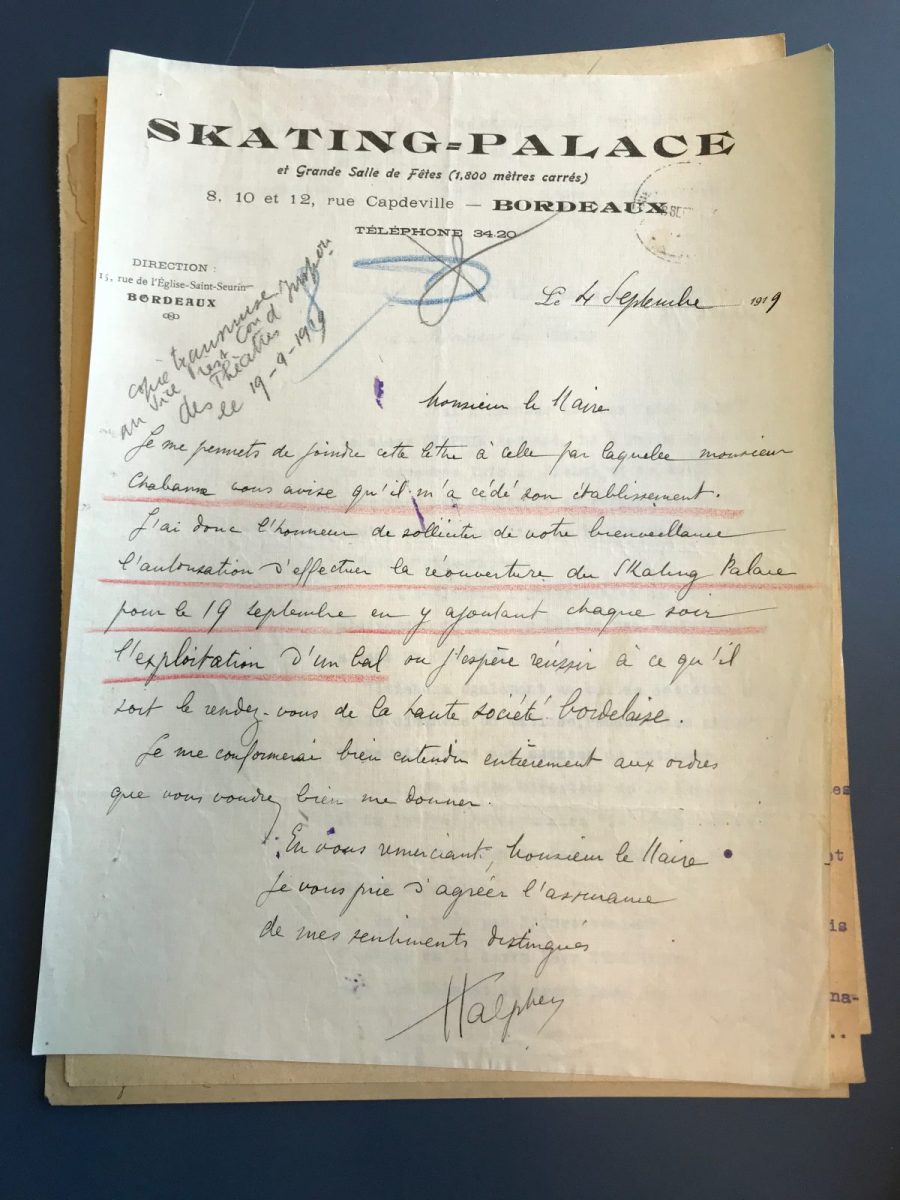 SKATING=PALACE
et Grande Salle de Fêtes (1,800 mètres carrés)
8, 10 et 12, rue Capdeville — BORDEAUX
TÉLÉPHONE 34.20
DIRECTION :
15, rue de l'Église-Saint-Seurin
BORDEAUX
Le 4 Septembre 1919
copie transmise
au Vice
des Théâtres
le 19-9-1919
Monsieur le Maire
Je me permets de joindre cette lettre à celle par laquelle monsieur
vous avise qu'il m'a cédé son établissement.
J'ai donc l'honneur de solliciter de votre bienveillance
l'autorisation d'effectuer la réouverture du Skating Palace
pour le 19 septembre en y ajoutant chaque soir
l'exploitation d'un bal ou j'espère réussir à ce qu'il
soit le rendez-vous de la haute société bordelaise.
Je me conformerai bien entendu entièrement aux ordres
que vous voudrez bien me donner.
En vous remerciant, Monsieur le Maire
je vous prie d'agréer l'assurance
de mes sentiments distingués
Halphen
es
et
is
na-
..